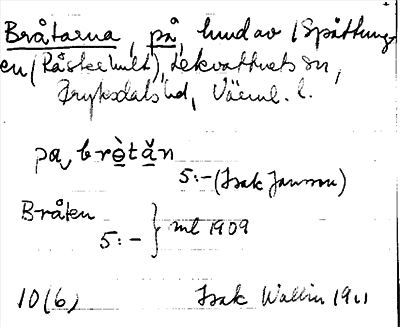 Bråtarna, på, hud av (Spåttung-
en (Råskehult), Lekvattnets sn,
Fryksdals hd, Värml. l.
pa, brètăn
5:- (Isak Jansson)
Bråten
5:- } ml 1909
10(6) Isak Wallin 1911